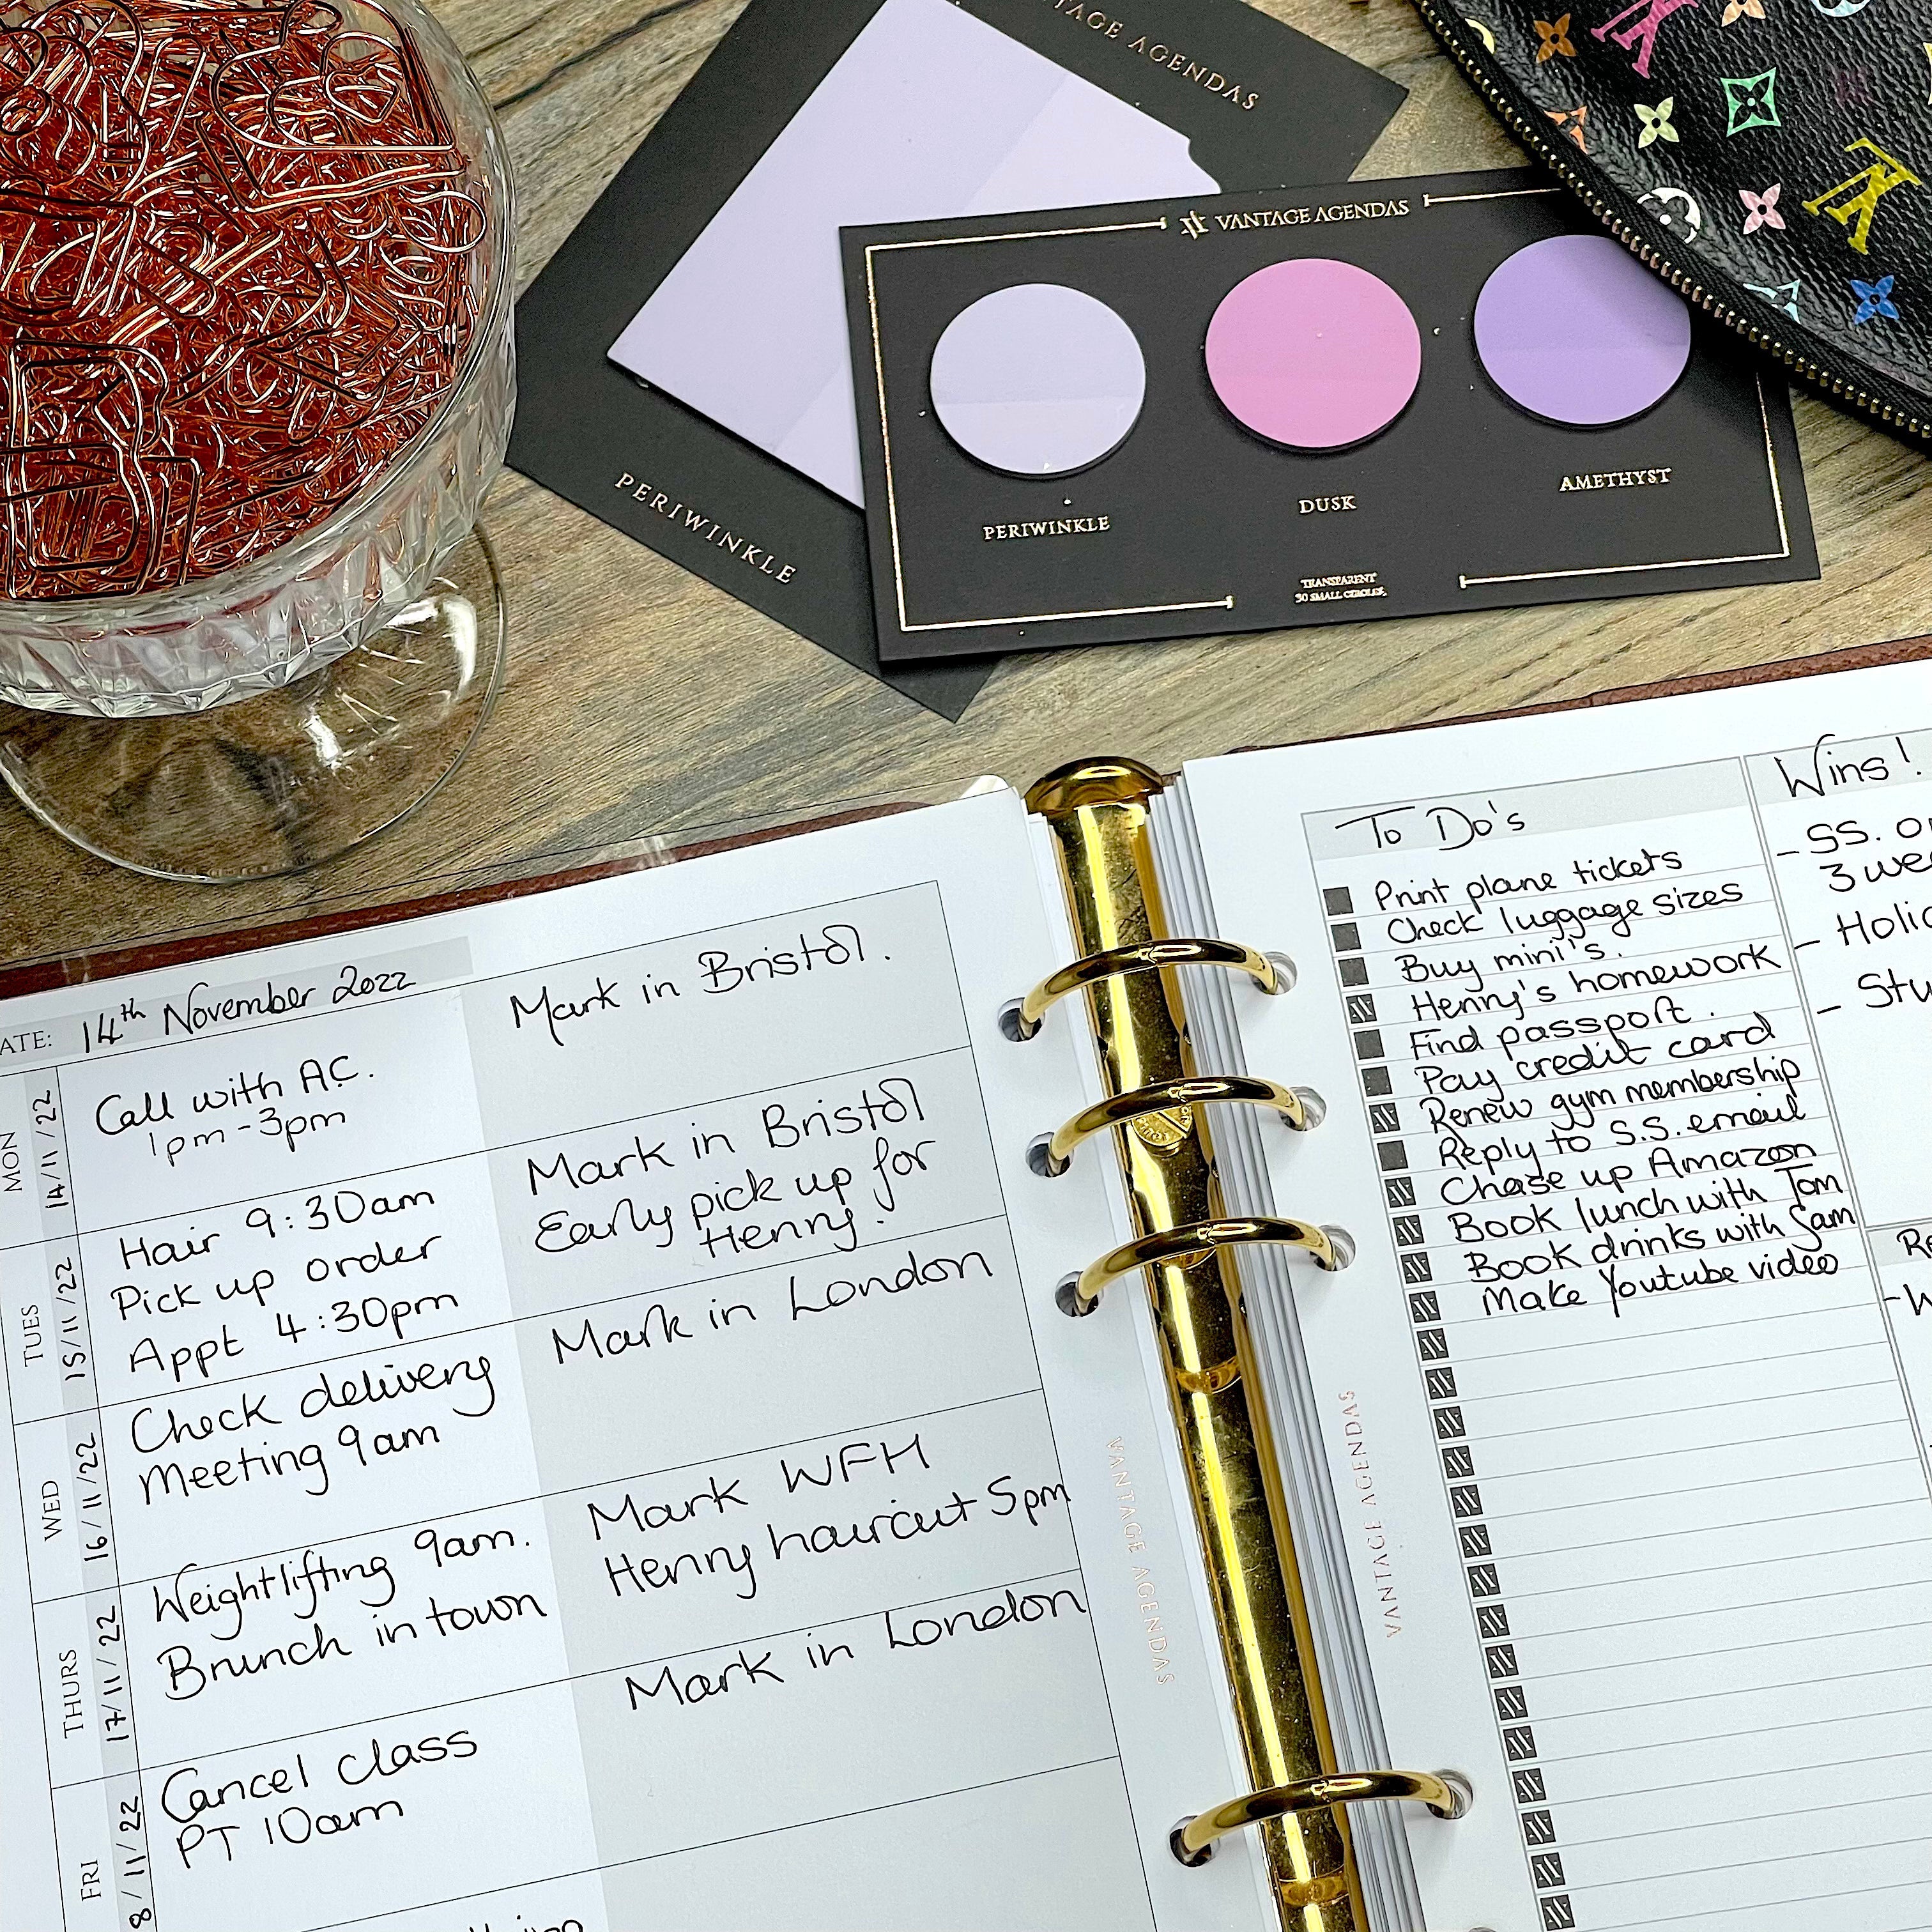 VANTAGE AGENDAS
PERIWINKLE
VANTAGE AGENDAS
PERIWINKLE
DUSK
AMETHYST
TRANSPARENT
30 SMALL CIRCLES
14th November 2022
MON
14/11/22
Call with A.C.
1pm-3pm
Mark in Bristol.
TUES
15/11/22
Hair 9:30am
Pick up order
Appt 4:30pm
Mark in Bristol
Early pick up for
Henry.
WED
16/11/22
Check delivery
Meeting 9am
Mark in London
THURS
17/11/22
Weightlifting 9am.
Brunch in town
Mark WFH
Henry haircut 5pm
FRI
8/11/22
Cancel class
PT 10am
Mark in London
VANTAGE AGENDAS
VANTAGE AGENDAS
To Do's
Print plane tickets
Check luggage sizes
Buy mini's.
Henry's homework
Find passport.
Pay credit card
Renew gym membership
Reply to S.S. email
Chase up Amazon
Book lunch with Tom
Book drinks with Sam
Make Youtube video
Wins!
- SS.
3
-
-